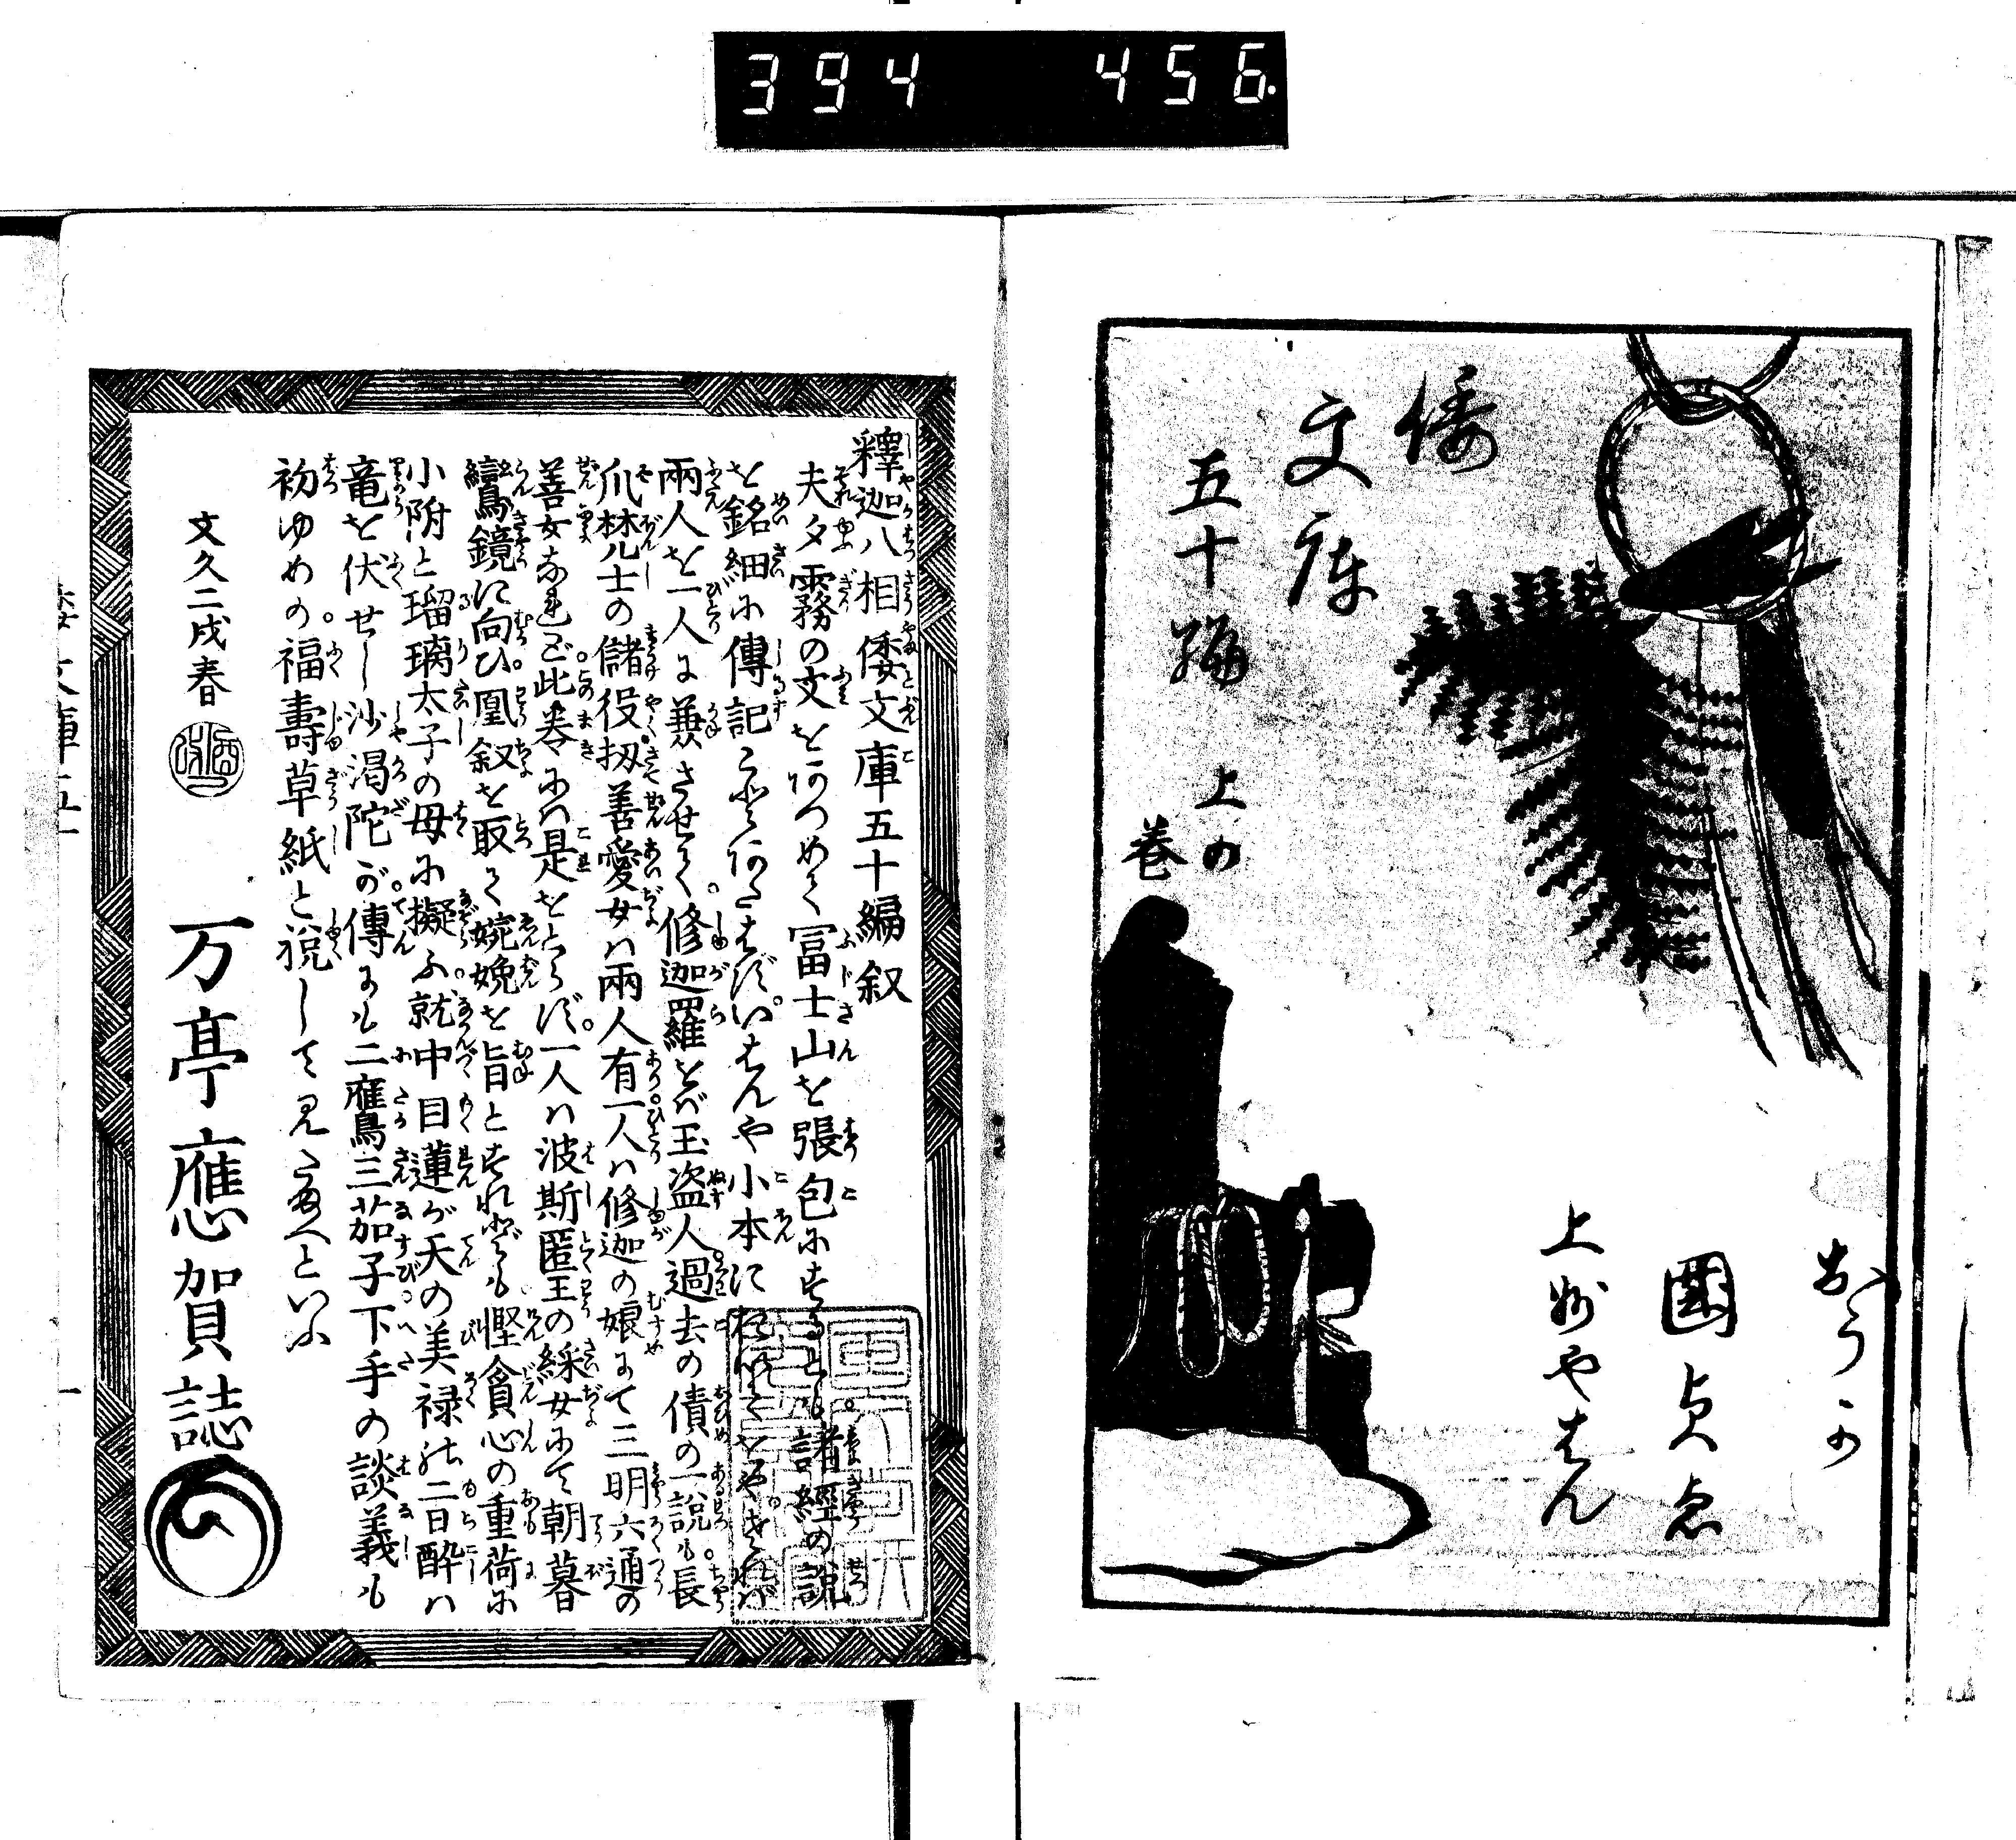 394 456
倭
文庫
五十編
上の
巻
おうか
國貞画
上州やはん
釋迦八相倭文庫五十編叙
夫夕霧の文をあつめて冨士山を張包にするとも諸經の説
を銘細に傳記
小本に
兩人を一人に兼させて。修迦羅をば玉盗人過去の債の一説も長
爪梵士の儲役扨善愛女は兩人有一人は修迦の娘にて三明六通の
善女なれど此巻には是をとらず。一人は波斯匿王の綵女にて朝暮
鸞鏡に向ひ凰釵を取て婉娩を旨とすれども慳貪心の重荷に
小附と瑠璃太子の母に擬ふ就中目蓮が天の美禄の二日酔は
竜を伏せし沙渇陀が傳にも二鷹三茄子下手の談義も
初ゆめの福壽草紙と説して見たまへといふ
文久二戌春
万亭應賀誌
文庫五十
一